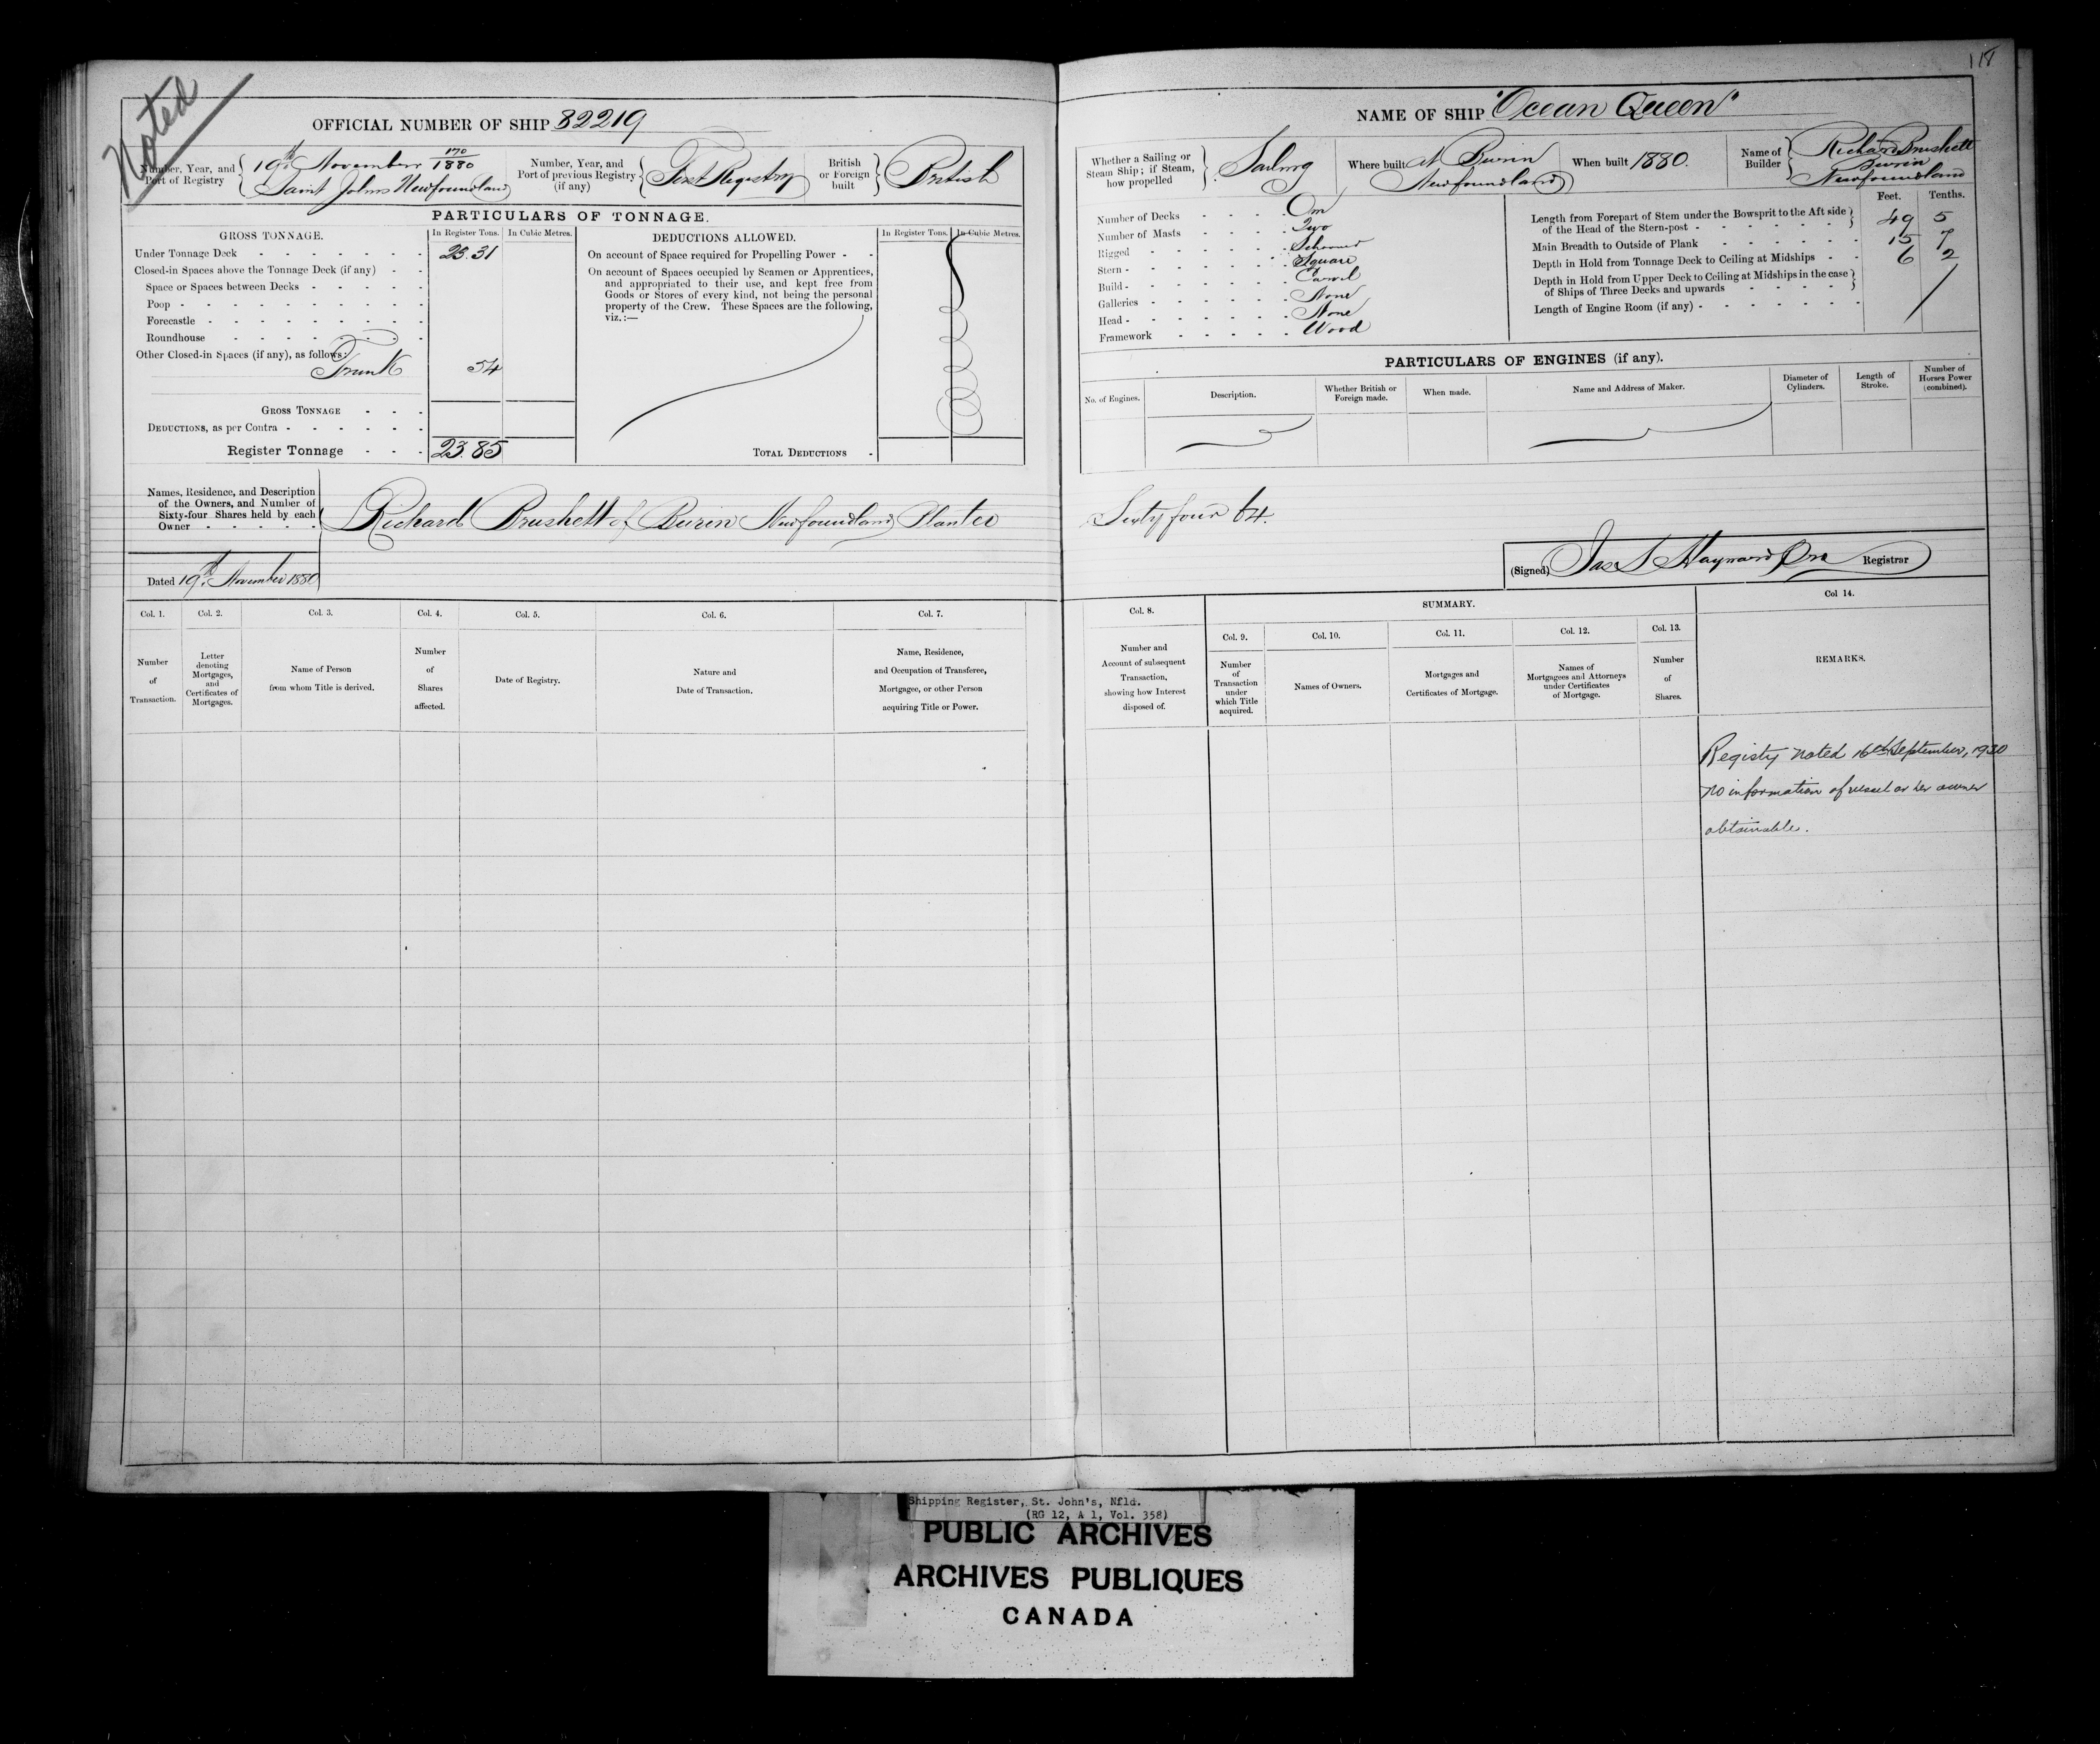 118
Noted
OFFICIAL NUMBER OF SHIP 82219
Number, Year, and Port of Registry { 19th November 170/1880 Saint Johns Newfoundland
Number, Year, and Port of previous Registry (if any) { First Registry
British or Foreign built } British
PARTICULARS OF TONNAGE.
GROSS TONNAGE. In Register Tons. In Cubic Metres.
Under Tonnage Deck 23.31
Closed-in Spaces above the Tonnage Deck (if any)
Space or Spaces between Decks
Poop
Forecastle
Roundhouse
Other Closed-in Spaces (if any), as follows:
Trunk 54
GROSS TONNAGE
DEDUCTIONS, as per Contra
Register Tonnage 23.85
DEDUCTIONS ALLOWED. In Register Tons. In Cubic Metres.
On account of Space required for Propelling Power
On account of Spaces occupied by Seamen or Apprentices,
and appropriated to their use, and kept free from
Goods or Stores of every kind, not being the personal
property of the Crew. These Spaces are the following,
viz.:—
TOTAL DEDUCTIONS
NAME OF SHIP "Ocean Queen"
Whether a Sailing or Steam Ship; if Steam, how propelled } Sailing
Where built At Burin Newfoundland
When built 1880.
Name of Builder } Richard Brushett Burin Newfoundland
Number of Decks One
Number of Masts Two
Rigged Schooner
Stern Square
Build Carvel
Galleries None
Head None
Framework Wood
Feet. Tenths.
Length from Forepart of Stem under the Bowsprit to the Aft side of the Head of the Stern-post 49 5
Main Breadth to Outside of Plank 15 7
Depth in Hold from Tonnage Deck to Ceiling at Midships 6 2
Depth in Hold from Upper Deck to Ceiling at Midships in the case of Ships of Three Decks and upwards
Length of Engine Room (if any)
PARTICULARS OF ENGINES (if any).
No. of Engines. Description. Whether British or Foreign made. When made. Name and Address of Maker. Diameter of Cylinders. Length of Stroke. Number of Horses Power (combined).
Names, Residence, and Description
of the Owners, and Number of
Sixty-four Shares held by each
Owner
Richard Brushett of Burin Newfoundland Planter Sixty four 64.
Dated 19th November 1880
(Signed) Jas S Hayward Registrar
Col. 1. Number of Transaction.
Col. 2. Letter denoting Mortgages, and Certificates of Mortgages.
Col. 3. Name of Person from whom Title is derived.
Col. 4. Number of Shares affected.
Col. 5. Date of Registry.
Col. 6. Nature and Date of Transaction.
Col. 7. Name, Residence, and Occupation of Transferee, Mortgagee, or other Person acquiring Title or Power.
Col. 8. Number and Account of subsequent Transaction, showing how Interest disposed of.
SUMMARY.
Col. 9. Number of Transaction under which Title acquired.
Col. 10. Names of Owners.
Col. 11. Mortgages and Certificates of Mortgage.
Col. 12. Names of Mortgagees and Attorneys under Certificates of Mortgage.
Col. 13. Number of Shares.
Col 14. REMARKS.
Registy noted 16th September, 1930
no information of vessel or her owner
obtainable.
Shipping Register, St. John's, Nfld.
(RG 12, A 1, Vol. 358)
PUBLIC ARCHIVES
ARCHIVES PUBLIQUES
CANADA